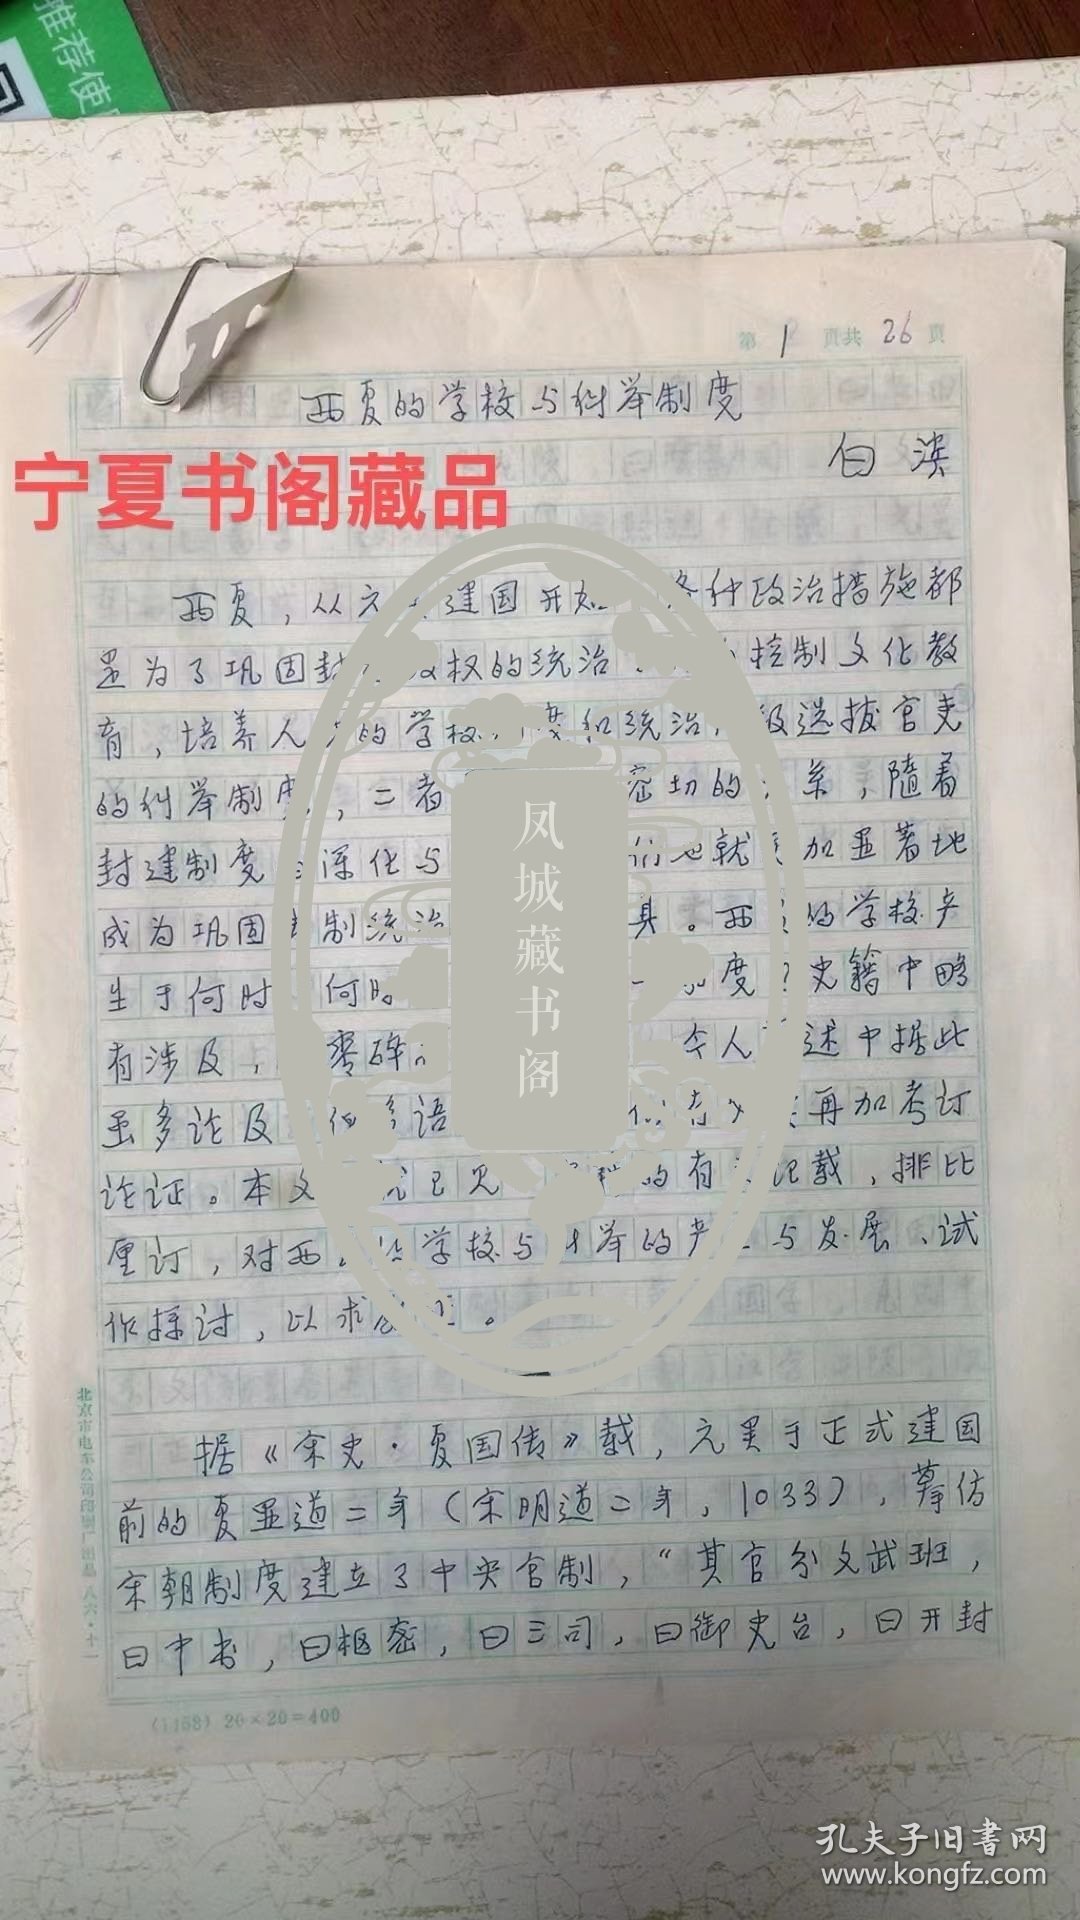 推荐使
第 1 页共 26 页
西夏的学校与科举制度
白滨
宁夏书阁藏品
西夏，从元 建国开始 各种政治措施都
是为了巩固封 政权的统治 控制文化教
育，培养人 的学校 度和统治 级选拔官吏
的科举制度，二者 密切的 系，随着
封建制度 深化与 们也就 加显著地
成为巩固 制统治 具。西 的学校产
生于何时 何时 制度？史籍中略
有涉及， 零碎 今人 述中据此
虽多论及 但多语 有 再加考订
论证。本文 就已见 的有 记载，排比
厘订，对西 学校与科举的产 与发展、试
作探讨，以求 。
一
据《宋史·夏国传》载，元昊于正式建国
前的夏显道二年（宋明道二年，1033），摹仿
宋朝制度建立了中央官制，“其官分文武班，
曰中书，曰枢密，曰三司，曰御史台，曰开封
凤城藏书阁
北京市电车公司印刷厂出品 八六·十一
(1168) 20×20=400
孔夫子旧书网
www.kongfz.com